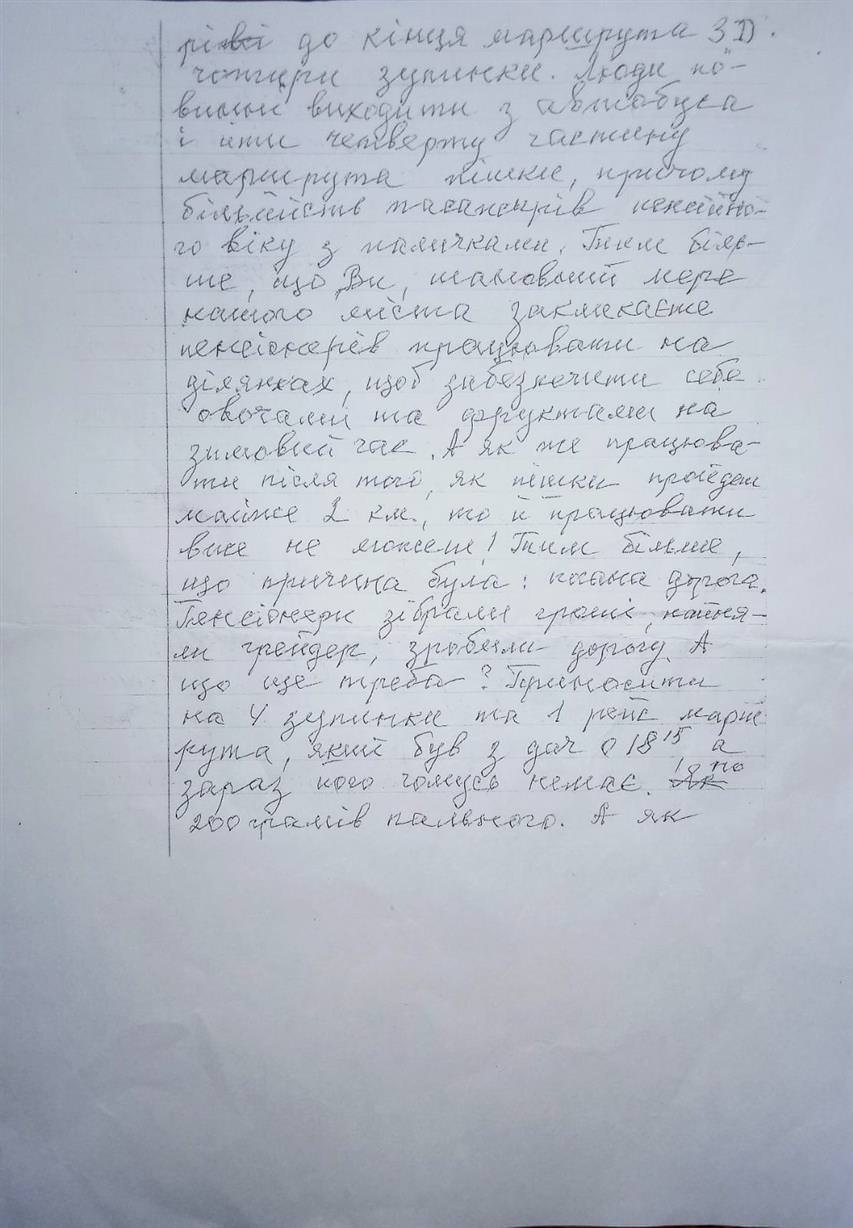 до кінця маршрута 3Д.
чотири зупинки. Люди по-
винні виходити з автобуса
і йти четверту частину
маршрута пішки, причому
більшість пасажирів пенсійно-
го віку з паличками. Тим біль-
ше, що Ви, шановний мере
нашого міста закликаєте
пенсіонерів працювати на
ділянках, щоб забезпечити себе
овочами та фруктами на
зимовий час. А як же працюва-
ти після того, як пішки пройдеш
майже 2 км., то й працювати
вже не можеш! Тим більше,
що причина була: погана дорога.
Пенсіонери зібрали гроші, найня-
ли грейдер, зробили дорогу. А
що ще треба? Приносити
на 4 зупинки та 1 рейс марш
рута, який був з дач о 18 15 а
зараз його чомусь немає. по
200 грамів пального. А як